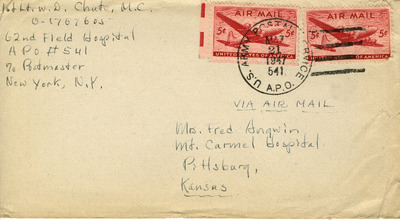 1st Lt. W. D. Chute, M.C.
O-1767605
62nd Field Hospital
A P O # 541
℅ Postmaster
New York, N.Y.
AIR MAIL AIR MAIL
5¢ 5¢ 5¢ 5¢
UNITED STATES OF AMERICA UNITED STATES OF AMERICA
U.S. ARMY POSTAL SERVICE
21
1947
541
A.P.O.
VIA AIR MAIL
Mrs. Fred Angwin
Mt. Carmel Hospital
Pittsburg,
Kansas